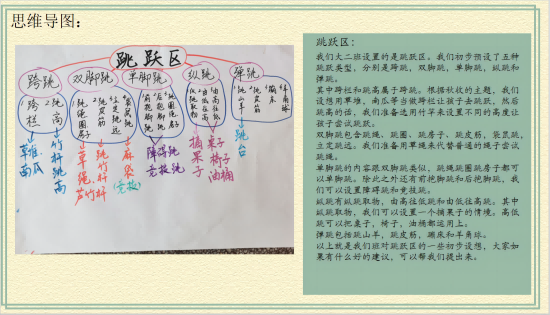 思维导图：
跳跃区
跨跳 双脚跳 单脚跳 纵跳 弹跳
跨栏
跳高
草堆
南瓜
竹杆跳高
草绳
跳竹杆
芦竹杆
麻袋
(竞技)
障碍跳
竞技跳
摘果子
桌子
椅子
油桶
跳台
跳跃区：
我们大二班设置的是跳跃区。我们初步预设了五种
跳跃类型，分别是跨跳，双脚跳，单脚跳，纵跳和
弹跳。
其中跨栏和跳高属于跨跳。根据秋收的主题，我们
设想用草堆，南瓜等当做跨栏让孩子去跳跃，然后
跳高的话，我们准备选用竹竿来设置不同的高度让
孩子尝试跳跃。
双脚跳包含跳绳，跳圈，跳房子，跳皮筋，袋鼠跳，
立定跳远。我们准备用草绳来代替普通的绳子尝试
跳绳。
单脚跳的内容跟双脚跳类似，跳绳跳圈跳房子都可
以单脚跳。除此之外还有前抱脚和后抱脚跳，我
们可以设置障碍跳和竞技跳。
纵跳有纵跳取物，由高往低和由低往高跳。其中
纵跳取物，我们可以设置一个摘果子的情境。高低
跳可以把桌子，椅子，油桶都运用上。
弹跳包括跳山羊，跳皮筋，蹦床和羊角球。
以上就是我们班对跳跃区的一些初步设想，大家如
果有什么好的建议，可以帮我们提出来。